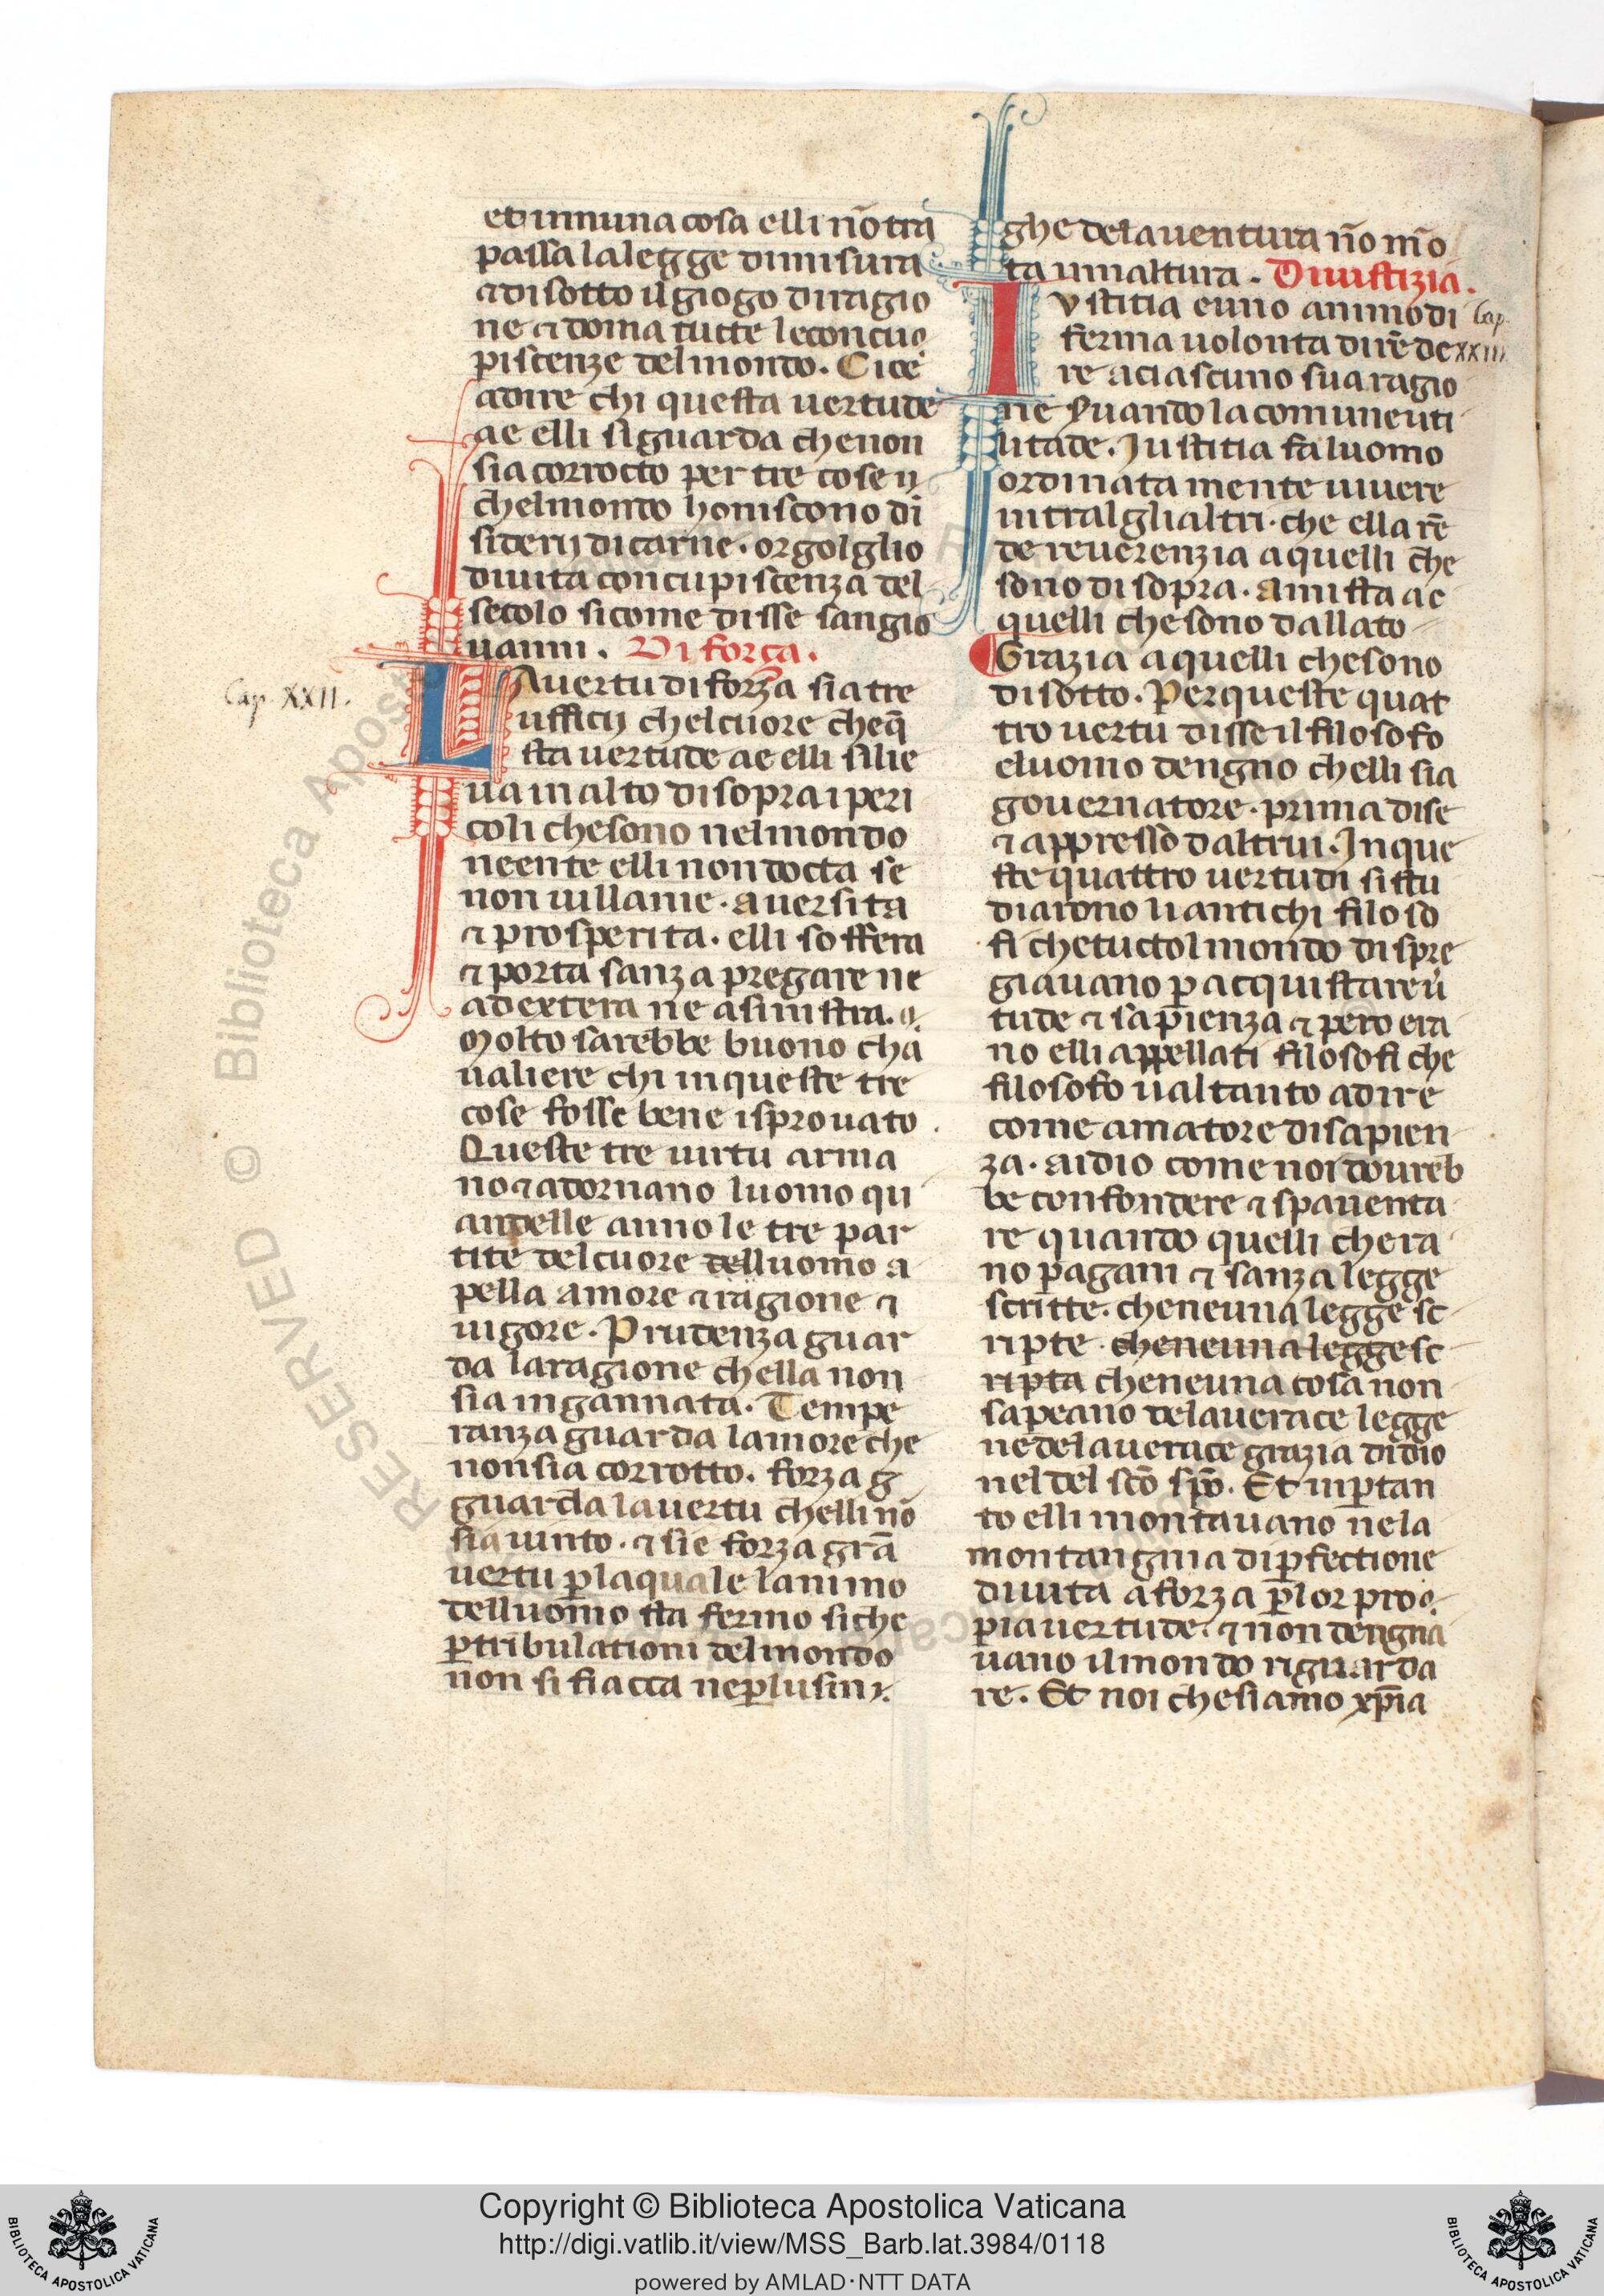 et innuna cosa elli nō tra
passa la legge dimisura
⁊ disotto il giogo diragio
ne ⁊ doma tutte leconcuo
piscenze delmondo. Cioe
adire chi questa uertude
ae elli siguarda chenon
sia corrocto per tre cose ij
chelmondo honiscono di
siderij dicarne. orgolglio
diuita concupiscenza del
secolo sicome disse sangio
uanni. Di força.
Cap. XXII.
LAuertu diforza sia tre
ufficij chelcuore cheq̄
sta uertude ae elli silie
ua inalto disopra i peri
coli chesono nelmondo
neente elli nondocta se
non uillanie. auersita
⁊ prosperita. elli soffera
⁊ porta sanza pregare ne
adextera ne asinistra.
Molto sarebbe buono cha
ualiere chi inqueste tre
cose fosse bene isprouato.
Queste tre uirtu arma
no ⁊ adornano luomo qu
andelle anno le tre par
tite delcuore delluomo a
pella amore ⁊ ragione ⁊
uigore. Prudenza guar
da laragione chella non
sia ingannata. Tempe
ranza guarda lamore che
nonsia corrotto. forza g
guarda lauertu chelli nō
sia uinto. ⁊ sie forza grā
uertu p̱laquale lanimo
delluomo sta fermo siche
p̱tribulationi delmondo
non si fiacca nep̱lusin
ghe delauentura nō mō
ta innaltura. Diiustizia.
Cap. XXIII.
IVstitia euno animodi
ferma uolonta dirēde
re aciascuno sua ragio
ne Quando la comune uti
litade. Justitia fa luomo
ordinatamente uiuere
intralglialtri. che ella rē
de reuerenzia aquelli che
sono disopra. amista ac
quelli chesono dallato
Grazia aquelli chesono
disotto. Perqueste quat
tro uertu disse il filosofo
eluomo dengno chelli sia
gouernatore. prima dise
⁊ appresso daltrui. Inque
ste quattro uertudi sistu
diarono li antichi filoso
fi chetuctol mondo dispre
giauano p̱ acquistare ū
tude ⁊ sapienza ⁊ pero era
no elli appellati filosofi che
filosofo ual tanto adire
come amatore disapien
za. aidio come noi doureb
be confondere ⁊ spauenta
re quando quelli chera
no pagani ⁊ sanza legge
scritte. cheneuna legge sc
ripte. cheneuna legge sc
ripta cheneuna cosa non
sapeano delauerace legge
ne delauerace grazia didio
nel del scō spō. Et inp̱tan
to elli montauano nela
montangnia dip̱fectione
diuita aforza p̱lor pro
pia uertude. ⁊ non dengna
uano ilmondo riguarda
re. Et noi chesiamo xp̄ia
RESERVED © Biblioteca Apostolica Vaticana
Copyright © Biblioteca Apostolica Vaticana
http://digi.vatlib.it/view/MSS_Barb.lat.3984/0118
powered by AMLAD·NTT DATA
BIBLIOTECA APOSTOLICA VATICANA
BIBLIOTECA APOSTOLICA VATICANA